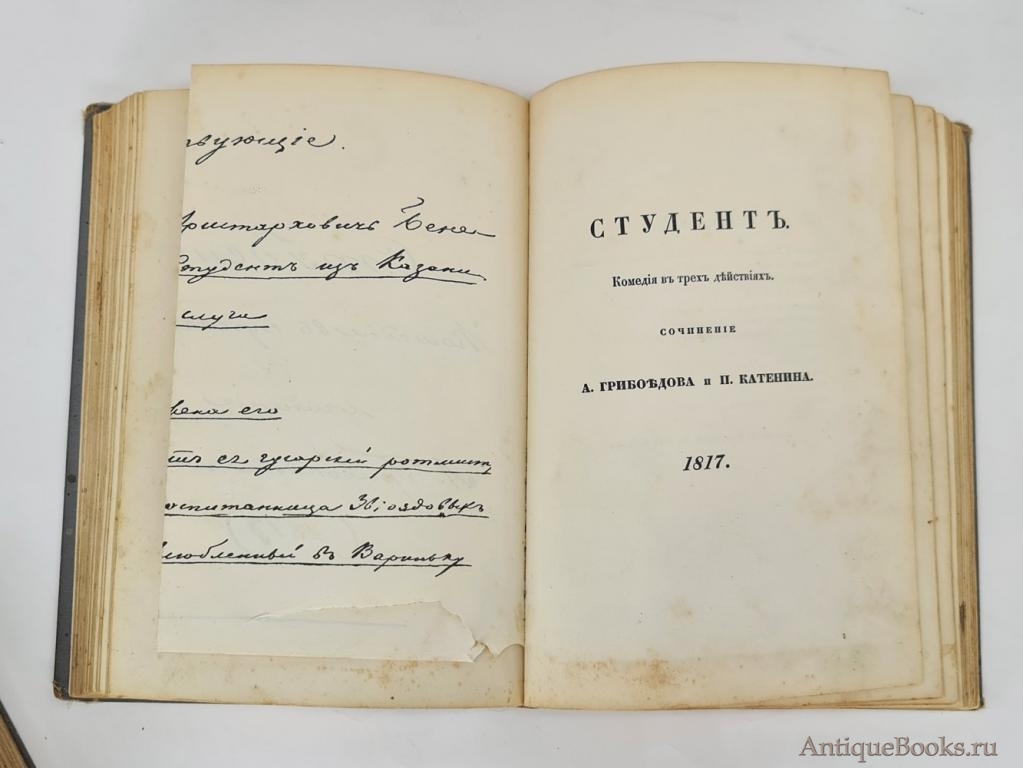 твующіе.
ристарховичъ Бене-
Студентъ изъ Казани
слуга
вена его
тъ съ гусарскій ротмист
оспитанница Звіоздовыхъ
люобленный въ Вариньку
СТУДЕНТЪ.
Комедія въ трехъ дѣйствіяхъ.
СОЧИНЕНІЕ
А. ГРИБОѢДОВА и П. КАТЕНИНА.
1817.
AntiqueBooks.ru